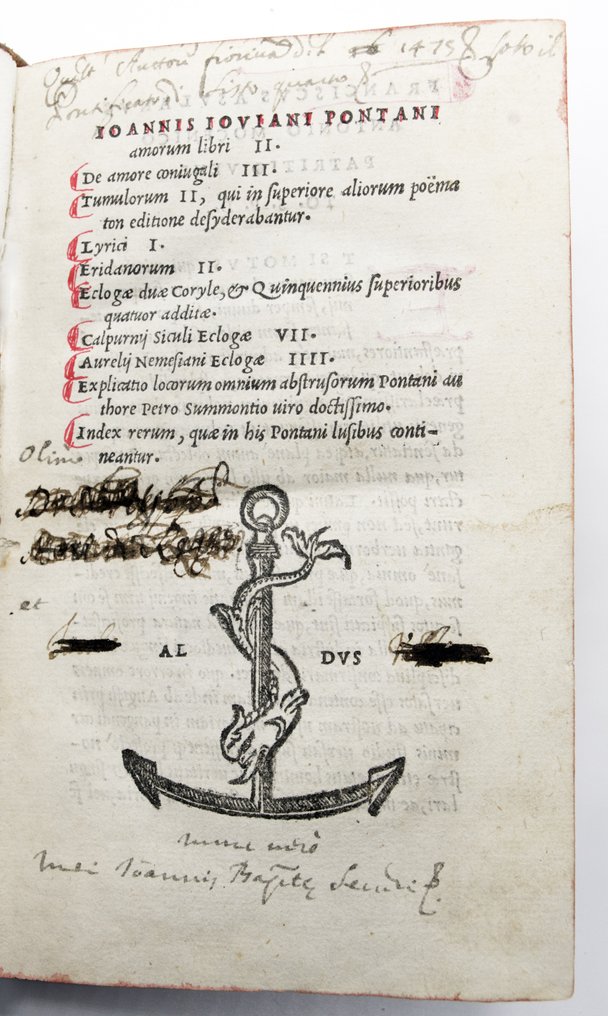 Quest' Auttore fioriva 1475 sotto il
Pontificato di Sisto quarto
IOANNIS IOVIANI PONTANI
amorum libri II.
De amore coniugali III.
Tumulorum II, qui in superiore aliorum poëma
ton editione desyderabantur.
Lyrici I.
Eridanorum II.
Eclogæ duæ Coryle, & Quinquennius superioribus
quatuor additæ.
Calpurnij Siculi Eclogæ VII.
Aurelij Nemesiani Eclogæ IIII.
Explicatio locorum omnium abstrusorum Pontani au
thore Petro Summontio uiro doctissimo.
Index rerum, quæ in his Pontani lusibus conti-
neantur.
Olim
et
AL DVS
nunc uero
mei Ioannis Bapte